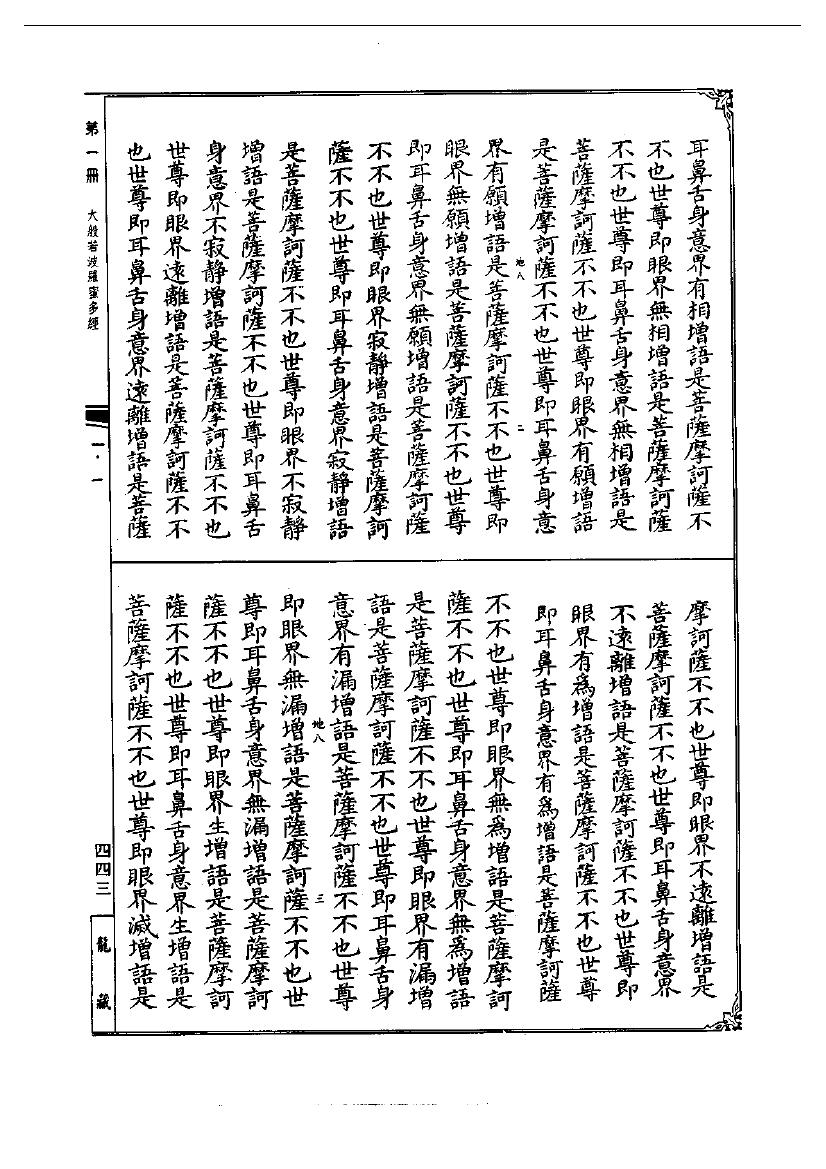 耳鼻舌身意界有相增語是菩薩摩訶薩不
不也世尊即眼界無相增語是菩薩摩訶薩
不不也世尊即耳鼻舌身意界無相增語是
菩薩摩訶薩不不也世尊即眼界有願增語
是菩薩摩訶薩不不也世尊即耳鼻舌身意
地八 二
界有願增語是菩薩摩訶薩不不也世尊即
眼界無願增語是菩薩摩訶薩不不也世尊
即耳鼻舌身意界無願增語是菩薩摩訶薩
不不也世尊即眼界寂靜增語是菩薩摩訶
薩不不也世尊即耳鼻舌身意界寂靜增語
是菩薩摩訶薩不不也世尊即眼界不寂靜
增語是菩薩摩訶薩不不也世尊即耳鼻舌
身意界不寂靜增語是菩薩摩訶薩不不也
世尊即眼界遠離增語是菩薩摩訶薩不不
也世尊即耳鼻舌身意界遠離增語是菩薩
摩訶薩不不也世尊即眼界不遠離增語是
菩薩摩訶薩不不也世尊即耳鼻舌身意界
不遠離增語是菩薩摩訶薩不不也世尊即
眼界有為增語是菩薩摩訶薩不不也世尊
即耳鼻舌身意界有為增語是菩薩摩訶薩
不不也世尊即眼界無為增語是菩薩摩訶
薩不不也世尊即耳鼻舌身意界無為增語
是菩薩摩訶薩不不也世尊即眼界有漏增
語是菩薩摩訶薩不不也世尊即耳鼻舌身
意界有漏增語是菩薩摩訶薩不不也世尊
地八 三
即眼界無漏增語是菩薩摩訶薩不不也世
尊即耳鼻舌身意界無漏增語是菩薩摩訶
薩不不也世尊即眼界生增語是菩薩摩訶
薩不不也世尊即耳鼻舌身意界生增語是
菩薩摩訶薩不不也世尊即眼界滅增語是
第一冊 大般若波羅蜜多經
一·一
四四三
龍藏